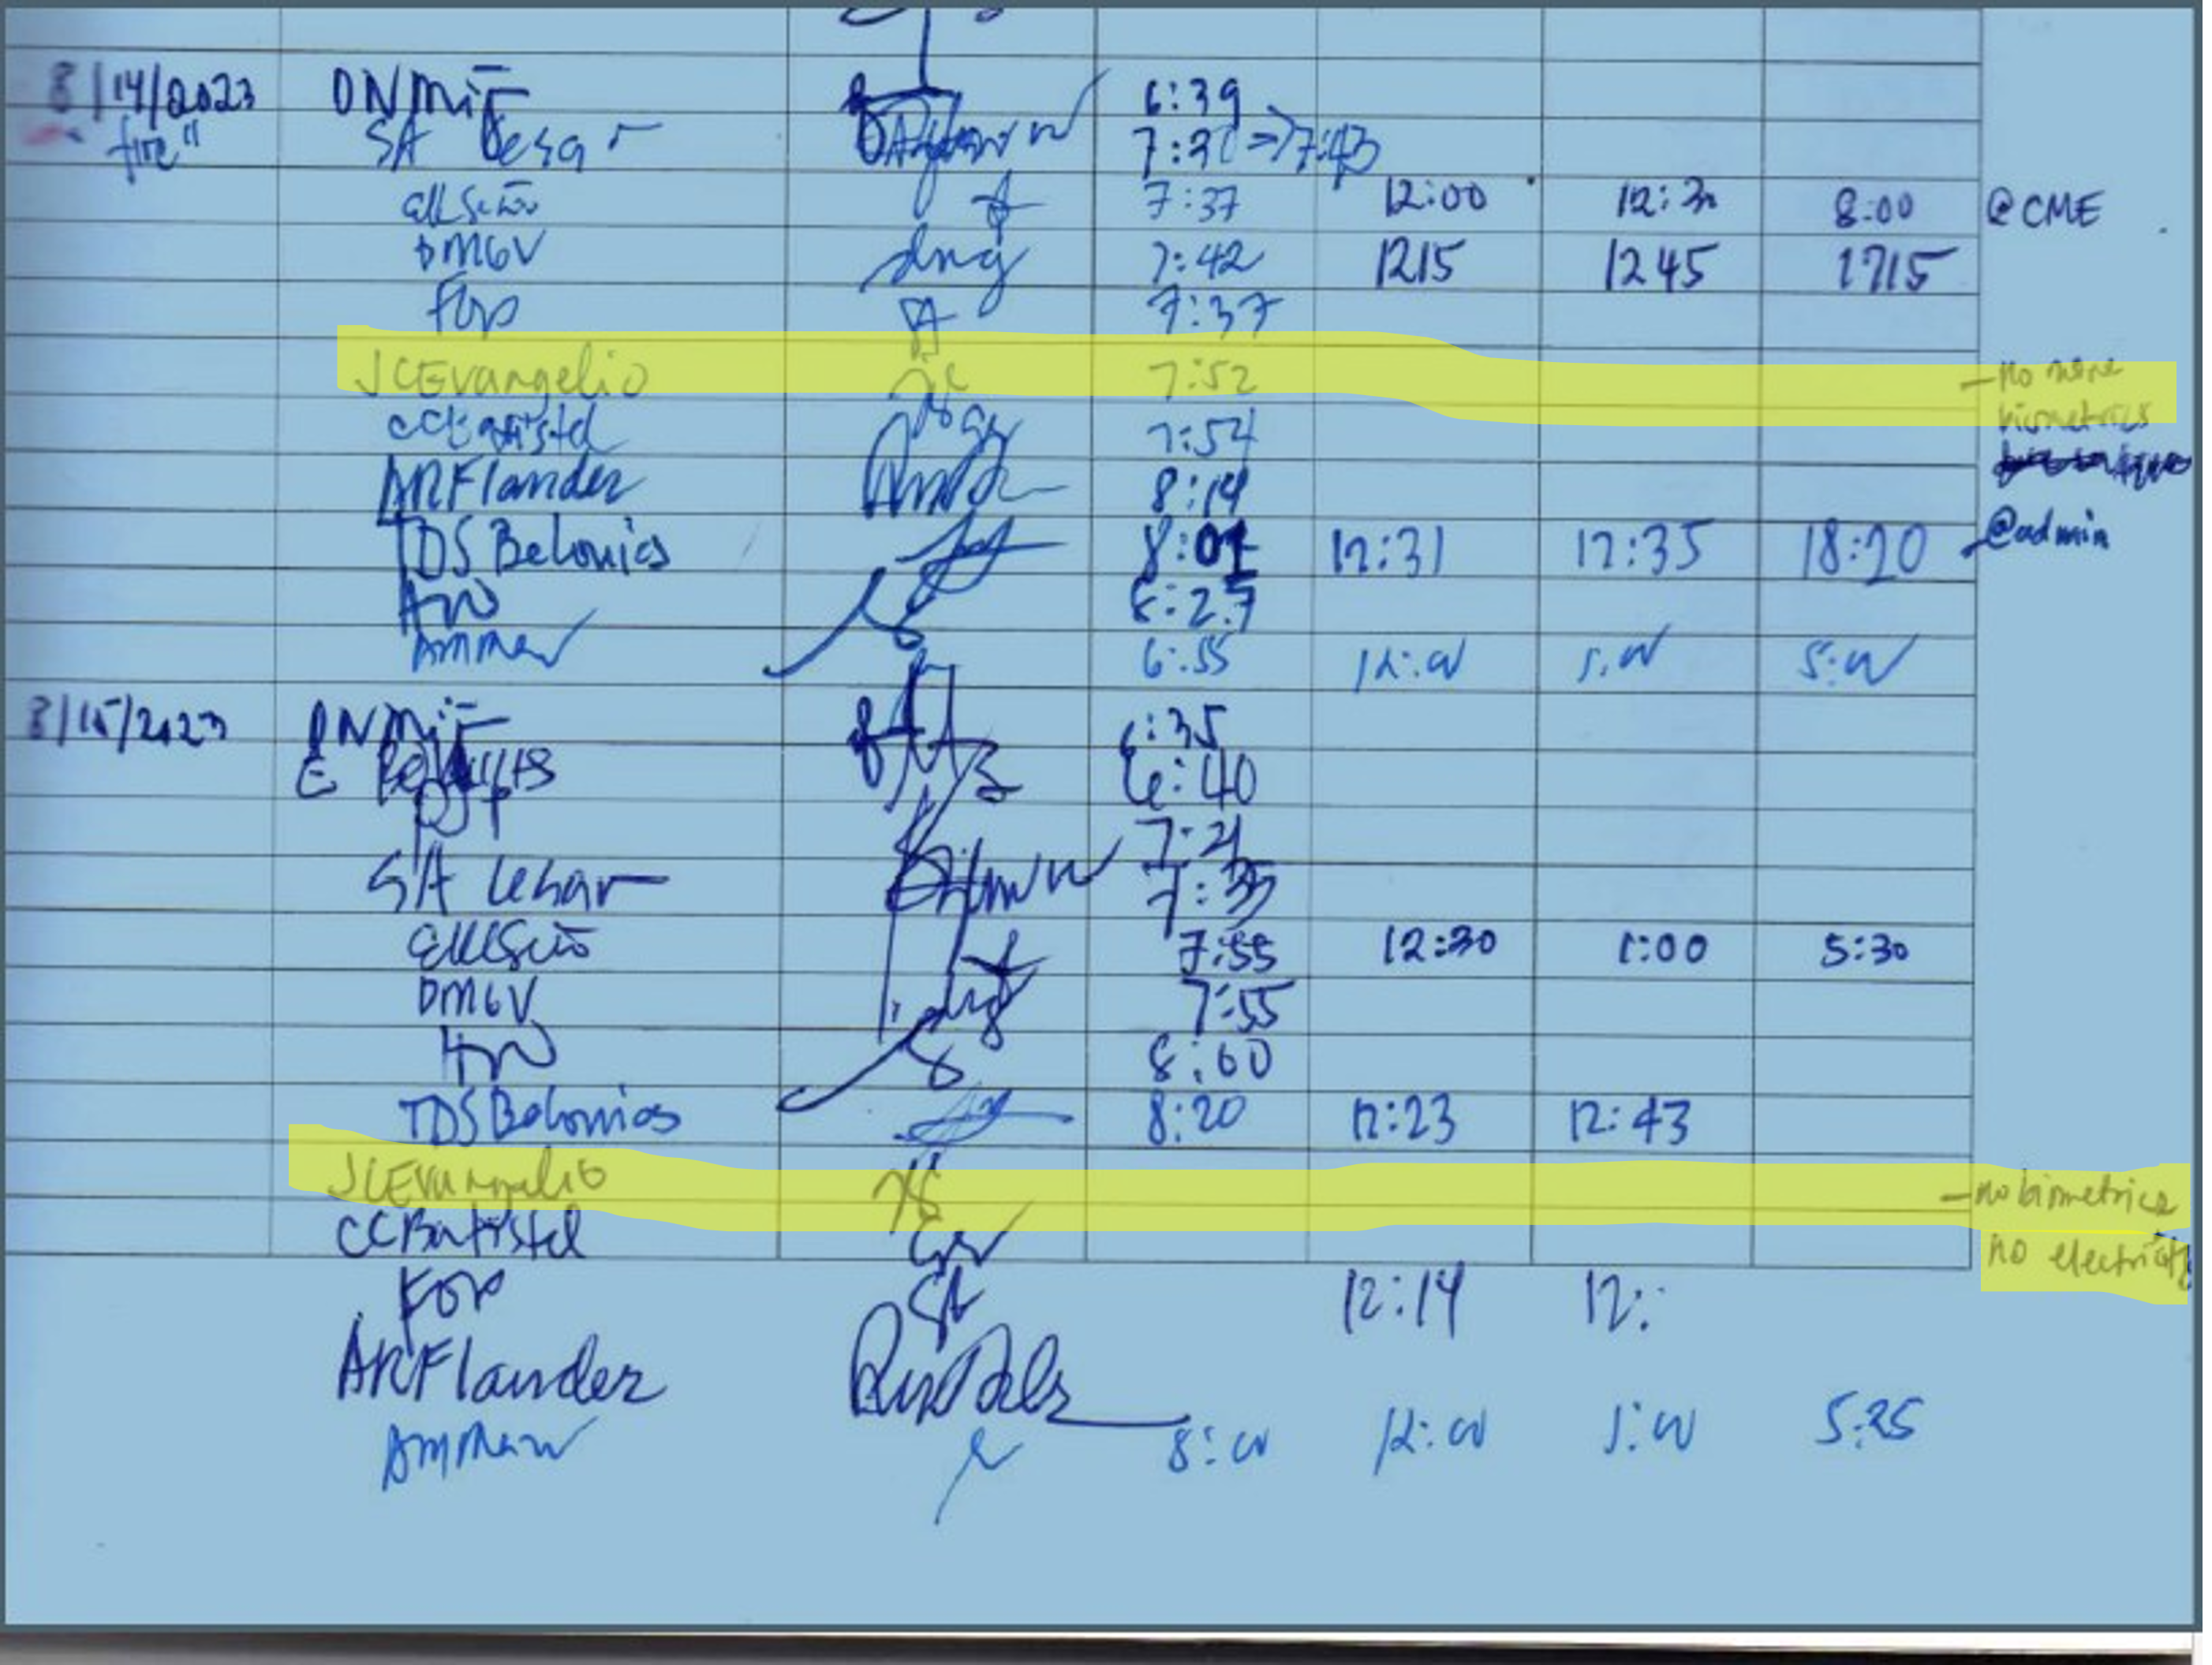 8/14/2023 DNMiF 6:39
"fire" SA Cesar 7:30 => 7:43
7:37 12:00 12:30 8:00 @CME
DMGV dmg 7:42 1215 1245 1715
FOP 7:37
JCEvangelio 7:52 - no more
biometrics
CCBatistel 7:54
ARFlander 8:14
TDS Belonios 8:01 12:31 12:35 18:20 @admin
8:27
6:55 12:00 1:00 5:00
8/15/2023 DNMiF 6:35
E 6:40
7:21
SA Cesar 7:35
7:55 12:30 1:00 5:30
DMGV dmg 7:55
8:00
TDS Belonios 8:20 12:23 12:43
JCEvangelio - no biometrics
CCBatistel no electricity
FOP 12:14 12:
ARFlander
8:00 12:00 1:00 5:25